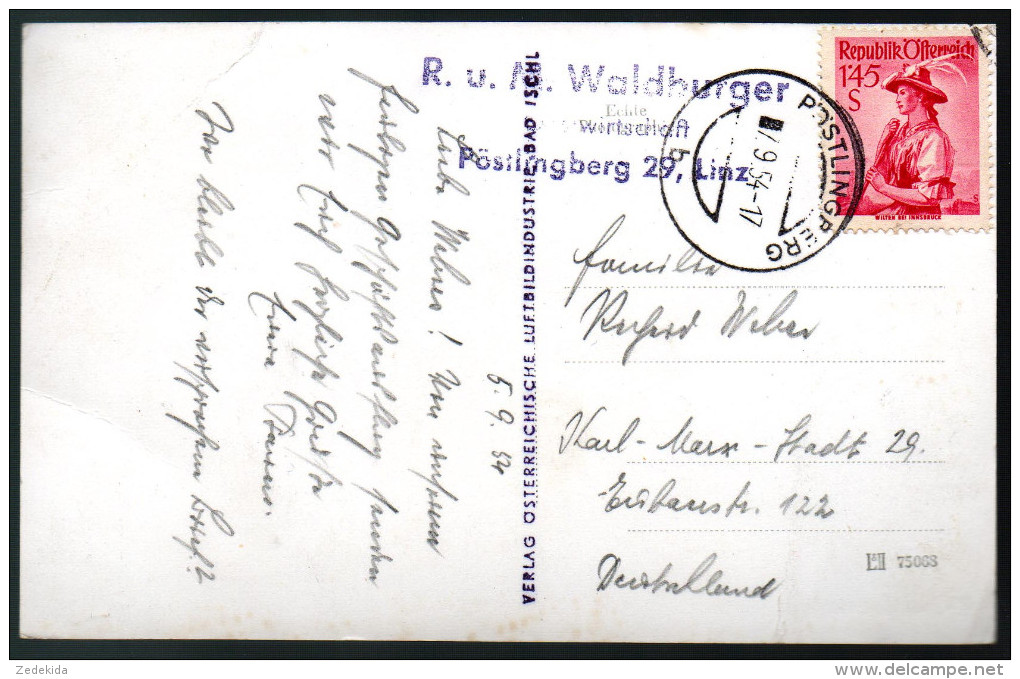 R. u. M. Waldburger
Echte
wirtschaft
Pöstlingberg 29, Linz
VERLAG ÖSTERREICHISCHE LUFTBILDINDUSTRIE BAD ISCHL
Republik Österreich
1'45
S
WILTEN BEI INNSBRUCK
PÖSTLINGBERG
7.9.54-17
b
5. 9. 54
Liebe Webers! Von unserem
senden
wir Euch herzliche Grüße
Eure
Wo bleibt der versprochene Brief?
Familie
Richard Weber
Karl-Marx-Stadt 29.
122
Deutschland
75068
Zedekida
www.delcampe.net